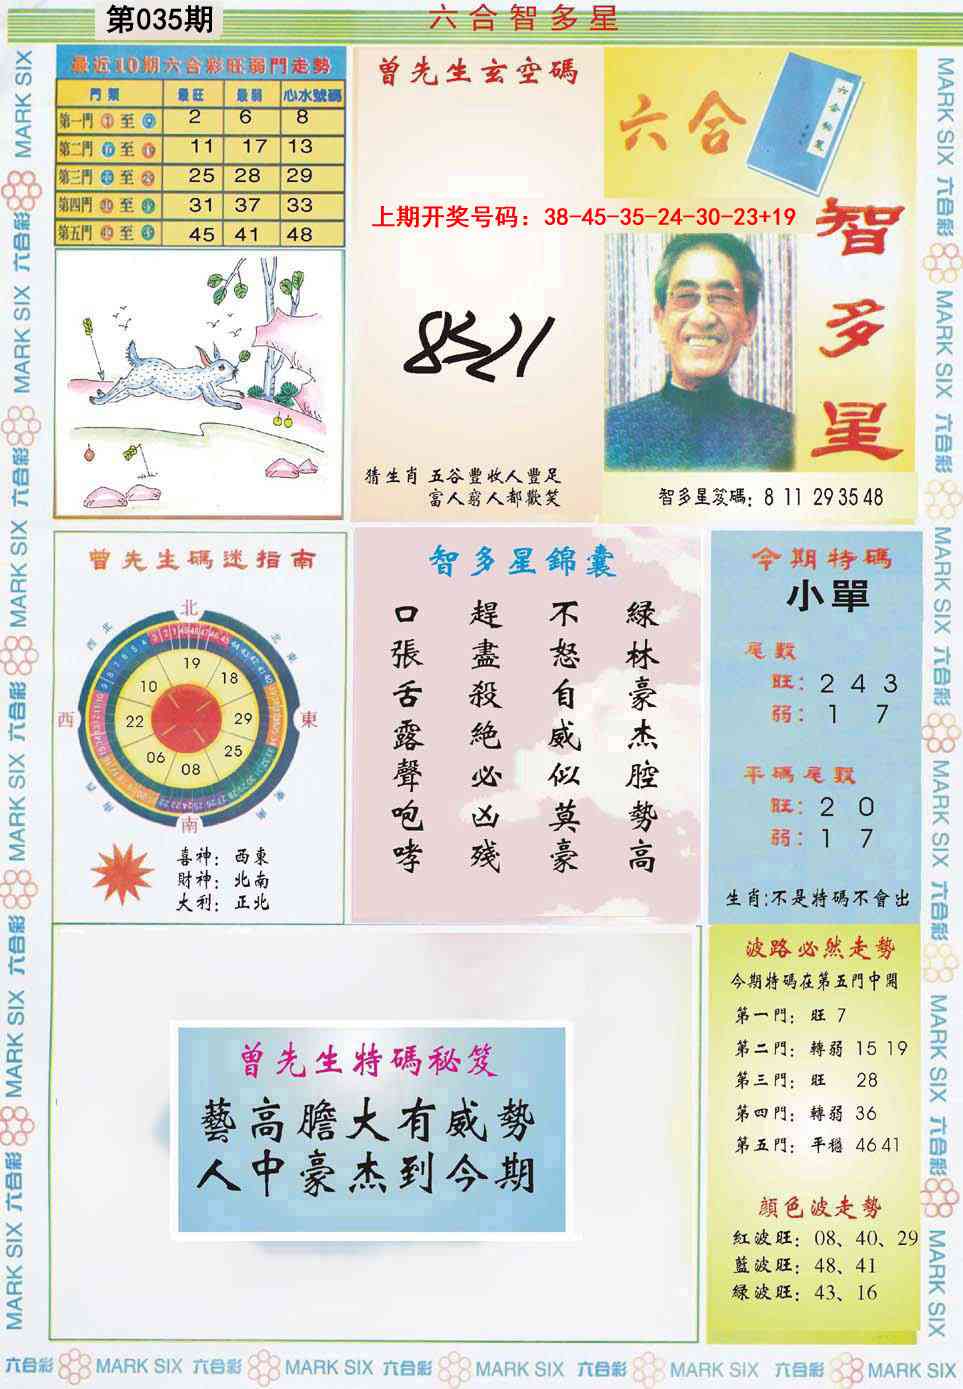 第035期
六合智多星
最近10期六合彩旺弱門走勢
門類 最旺 最弱 心水號碼
第一門 至 2 6 8
第二門 至 11 17 13
第三門 至 25 28 29
第四門 至 31 37 33
第五門 至 45 41 48
曾先生玄空碼
六合
智多星
上期开奖号码：38-45-35-24-30-23+19
猜生肖 五谷豐收人豐足
富人窮人都歡笑
智多星笈碼：8 11 29 35 48
曾先生碼迷指南
北
西北
東北
西
東
西南
東南
南
19
18
29
25
08
06
22
10
喜神：西東
財神：北南
大利：正北
智多星錦囊
綠林豪杰腔勢高
不怒自威似莫豪
趕盡殺絕必凶殘
口張舌露聲咆哮
今期特碼
小單
尾數
旺：2 4 3
弱：1 7
平碼尾數
旺：2 0
弱：1 7
生肖:不是特碼不會出
曾先生特碼秘笈
藝高膽大有威勢
人中豪杰到今期
波路必然走勢
今期特碼在第五門中開
第一門：旺 7
第二門：轉弱 15 19
第三門：旺 28
第四門：轉弱 36
第五門：平穩 46 41
顔色波走勢
紅波旺：08、40、29
藍波旺：48、41
綠波旺：43、16
六合彩 MARK SIX 六合彩 MARK SIX 六合彩 MARK SIX 六合彩 MARK SIX 六合彩 MARK SIX
MARK SIX 六合彩 MARK SIX 六合彩 MARK SIX 六合彩 MARK SIX 六合彩 MARK SIX 六合彩 MARK SIX
MARK SIX 六合彩 MARK SIX 六合彩 MARK SIX 六合彩 MARK SIX 六合彩 MARK SIX 六合彩 MARK SIX